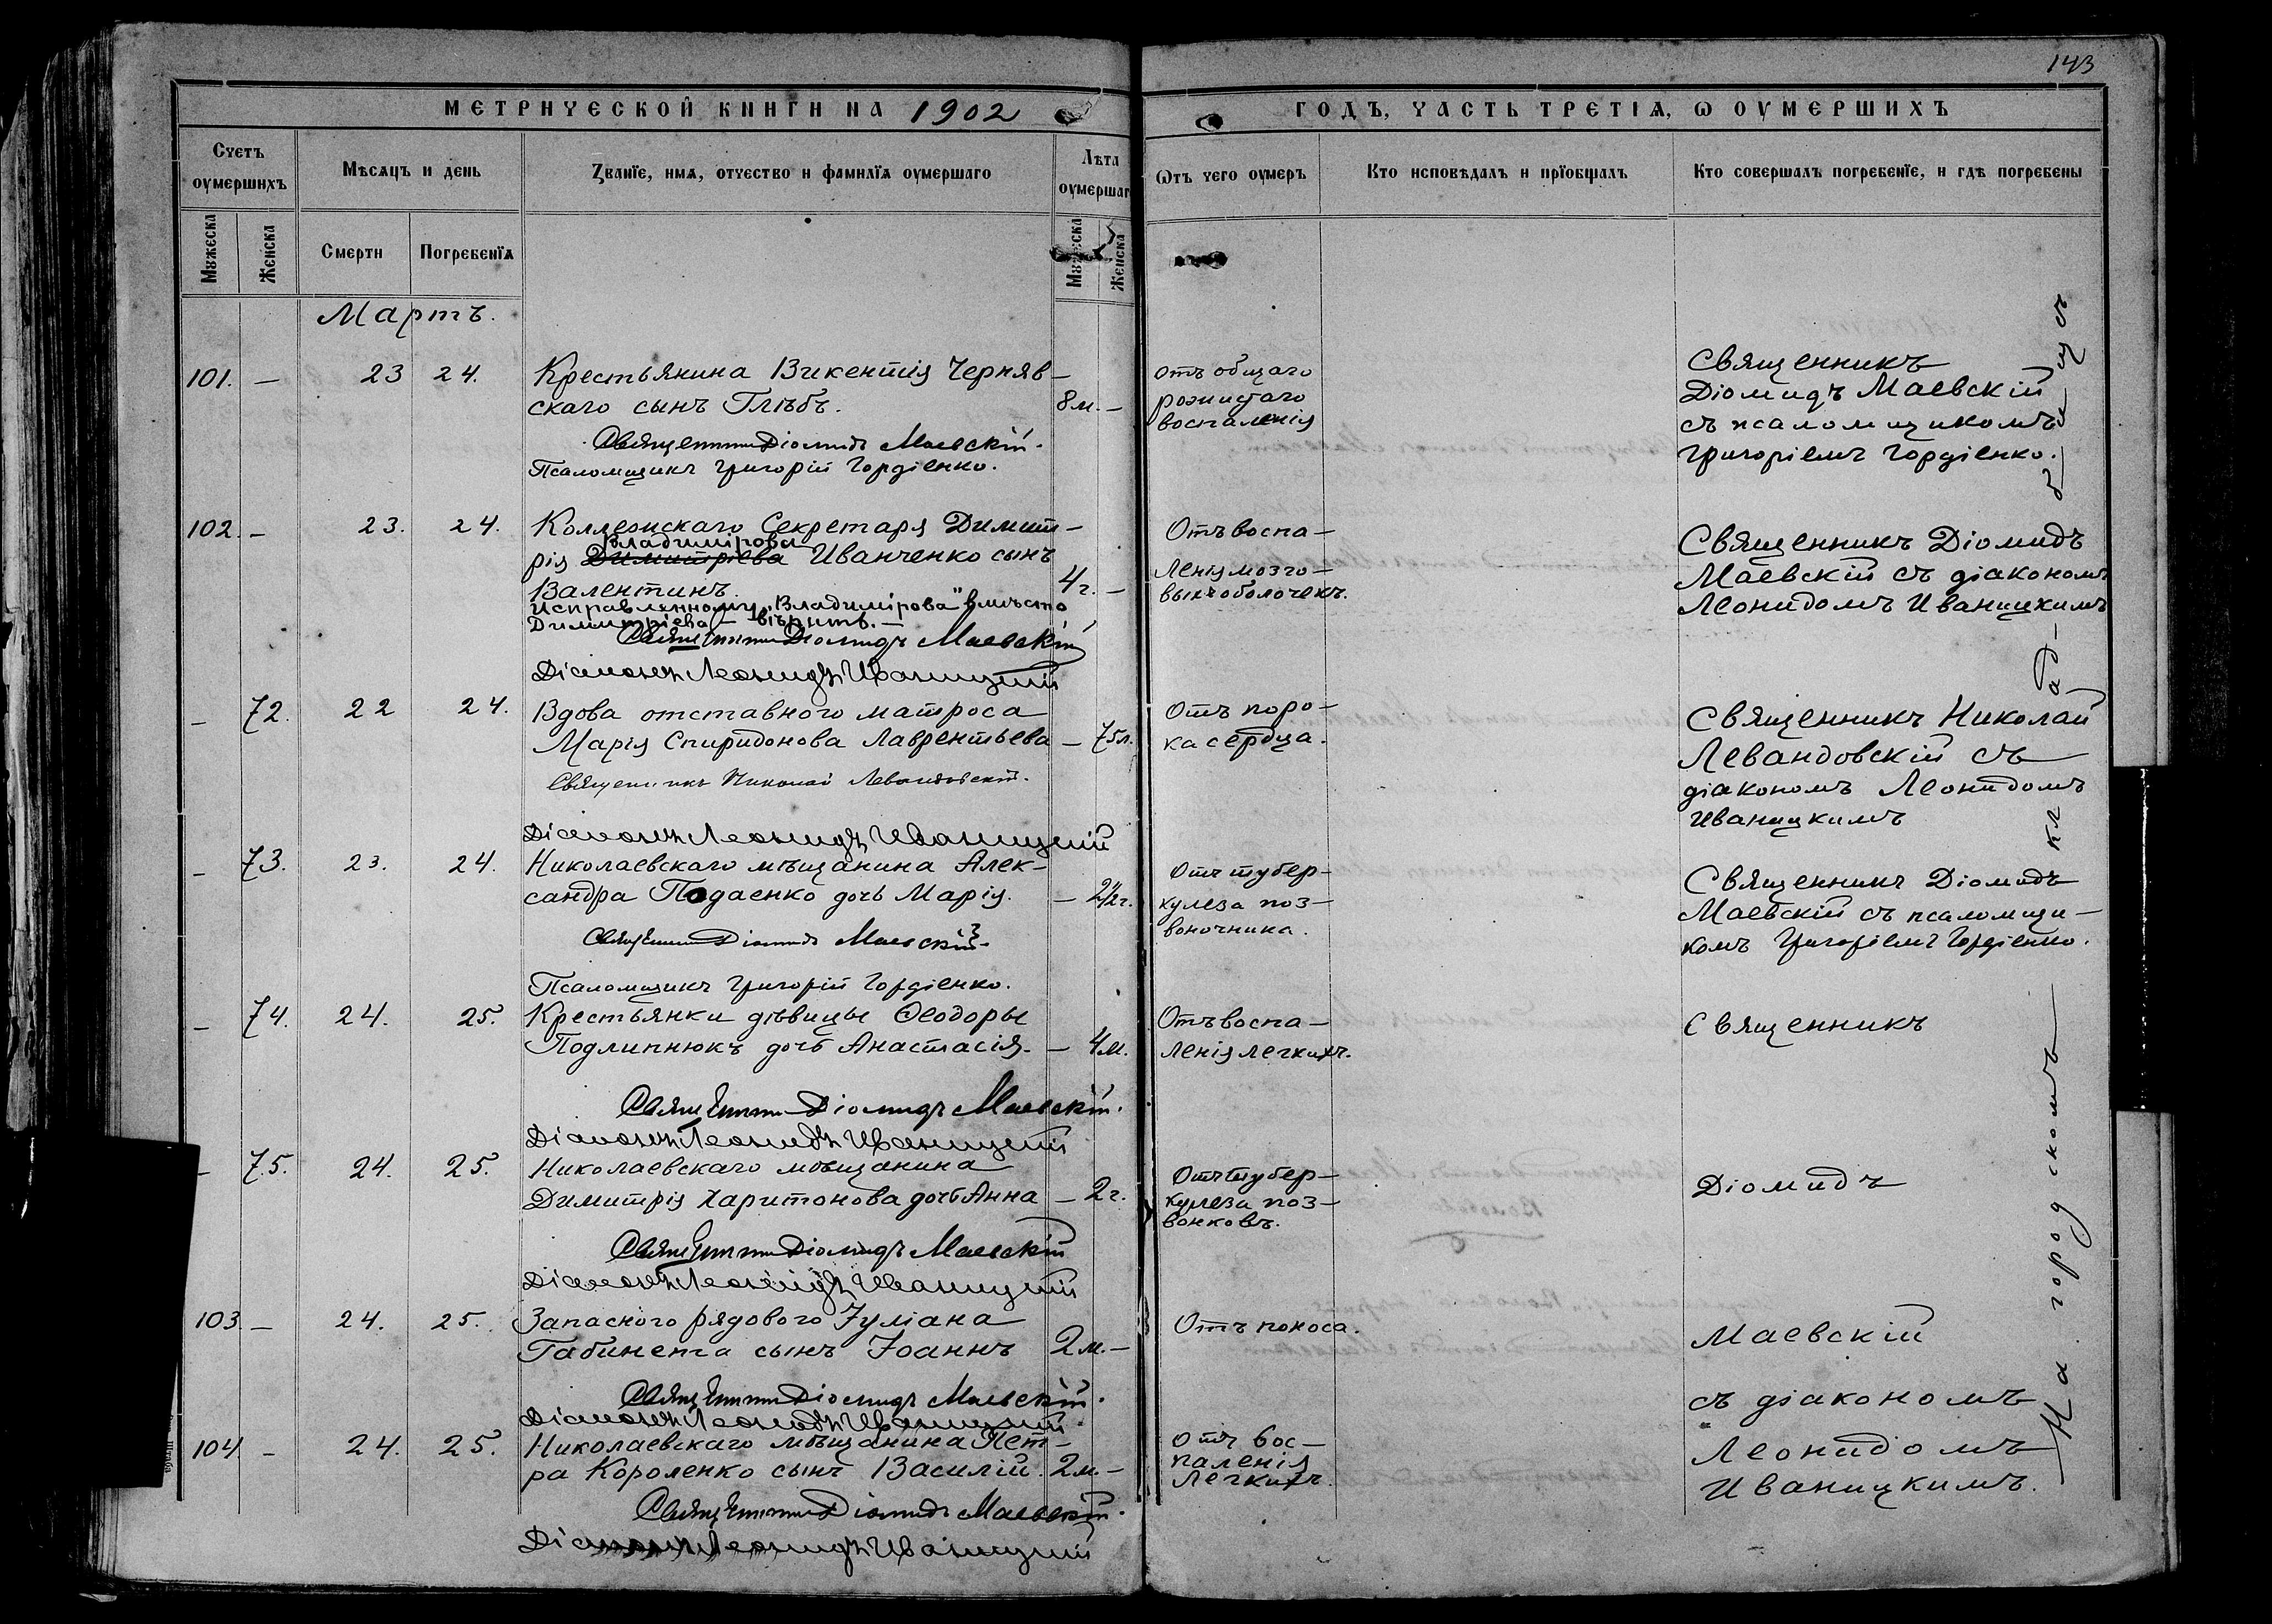 143
МЕТРИЧЕСКОЙ КНИГИ НА 1902
ГОДЪ, ЧАСТЬ ТРЕТІѦ, Ѡ ОУМЕРШИХЪ
Счетъ оумершихъ
Мѣсяцъ и день
Званїе, имѧ, отчество и фамилїѧ оумершаго
Лѣта оумершаг
Ѿтъ чего оумеръ
Кто исповѣдалъ и прїобщалъ
Кто совершалъ погребенїе, и гдѣ погребены
Мꙋжеска
Женска
Смерти
Погребенїѧ
Мꙋжеска
Женска
Мартъ.
101. — 23 24. Крестьянина Викентія Черняв-
скаго сынъ Глѣбъ. 8 м. —
Священникъ Діомидъ Маевскій.
Псаломщикъ Григорій Гордіенко.
отъ общаго
рожистаго
воспаленія
Священникъ
Діомидъ Маевскій
съ псаломщикомъ
Григоріемъ Гордіенко.
102. — 23. 24. Коллежскаго Секретаря Димит-
Владимірова
рія Димитріева Иванченко сынъ
Валентинъ. 4 г. —
Исправленному „Владимірова" вмѣсто
Димитріева — вѣрить. —
Священникъ Діомидъ Маевскій
Діаконъ Леонидъ Иваницкій
Отъ воспа-
ленія мозго-
выхъ оболочекъ.
Священникъ Діомидъ
Маевскій съ діакономъ
Леонидомъ Иваницкимъ
— 72. 22 24. Вдова отставного матроса
Марія Спиридонова Лаврентьева — 75 л.
Священникъ Николай Левандовскій.
Діаконъ Леонидъ Иваницкій
Отъ поро-
ка сердца.
Священникъ Николай
Левандовскій съ
діакономъ Леонидомъ
Иваницкимъ
— 73. 23. 24. Николаевскаго мѣщанина Алек-
сандра Подаенко дочь Марія. — 2½ г.
Священникъ Діомидъ Маевскій.
Псаломщикъ Григорій Гордіенко.
Отъ тубер-
кулеза поз-
воночника.
Священникъ Діомидъ
Маевскій съ псаломщи-
комъ Григоріемъ Гордіенко.
— 74. 24. 25. Крестьянки дѣвицы Ѳеодоры
Подлипнюкъ дочь Анастасія. — 4 м.
Священникъ Діомидъ Маевскій.
Діаконъ Леонидъ Иваницкій
Отъ воспа-
ленія легкихъ.
Священникъ
— 75. 24. 25. Николаевскаго мѣщанина
Димитрія Харитонова дочь Анна — 2 г.
Священникъ Діомидъ Маевскій
Діаконъ Леонидъ Иваницкій
Отъ тубер-
кулеза поз-
вонковъ.
Діомидъ
103. — 24. 25. Запасного рядового Іуліана
Габинета сынъ Іоаннъ 2 м. —
Священникъ Діомидъ Маевскій.
Діаконъ Леонидъ Иваницкій
Отъ поноса.
Маевскій
съ діакономъ
104. — 24. 25. Николаевскаго мѣщанина Пет-
ра Короленко сынъ Василій. 2 м. —
Священникъ Діомидъ Маевскій.
Діаконъ Леонидъ Иваницкій
Отъ вос-
паленія
легкихъ.
Леонидомъ
Иваницкимъ.
На городскомъ кладбищѣ